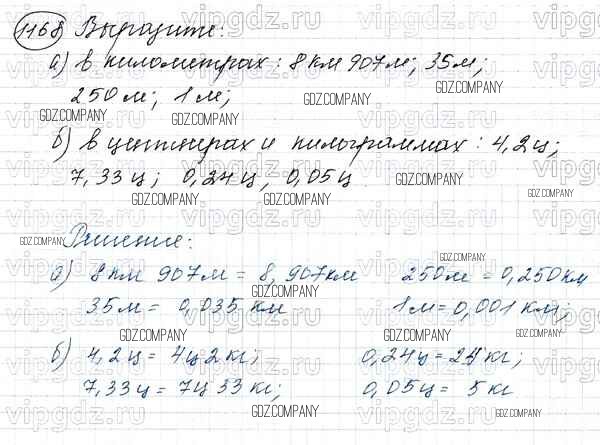 1168 Выразите:
а) в километрах: 8 км 907 м; 35 м;
250 м; 1 м;
б) в центнерах и килограммах: 4,2 ц;
7,33 ц; 0,24 ц, 0,05 ц
Решение:
а) 8 км 907 м = 8,907 км 250 м = 0,250 км
35 м = 0,035 км 1 м = 0,001 км;
б) 4,2 ц = 4 ц 2 кг; 0,24 ц = 24 кг;
7,33 ц = 7 ц 33 кг; 0,05 ц = 5 кг
vipgdz.com
GDZ.COMPANY